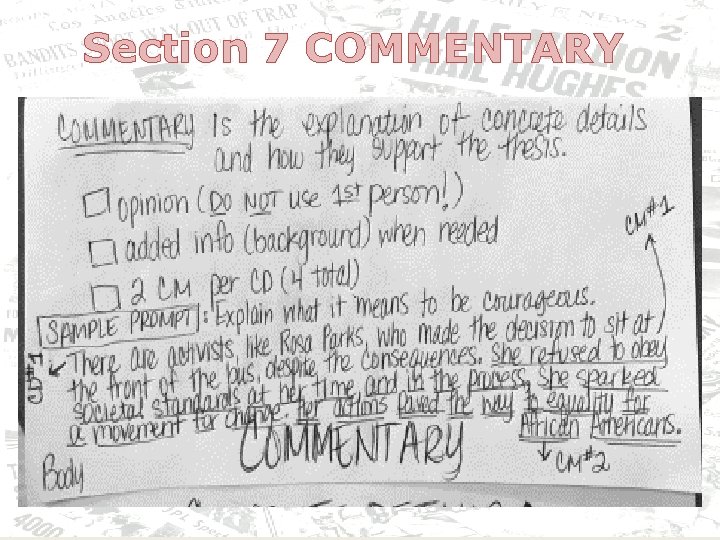 Section 7 COMMENTARY
COMMENTARY is the explanation of concrete details
and how they support the thesis.
opinion (DO NOT use 1st person!)
added info (background) when needed
CM#1
2 CM per CD (4 total)
SAMPLE PROMPT: Explain what it means to be courageous.
CD#1
There are activists, like Rosa Parks, who made the decision to sit at
the front of the bus, despite the consequences. She refused to obey
societal standards at her time and in the process, she sparked
a movement for change. Her actions paved the way to equality for
African Americans.
COMMENTARY
CM#2
Body